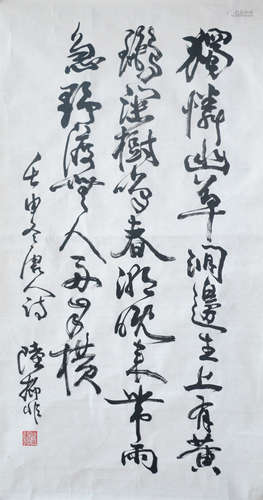 獨憐幽草澗邊生上有黃
鸝深樹鳴春潮晚來帶雨
急野渡無人舟自橫
壬申冬唐人詩
陸儼少